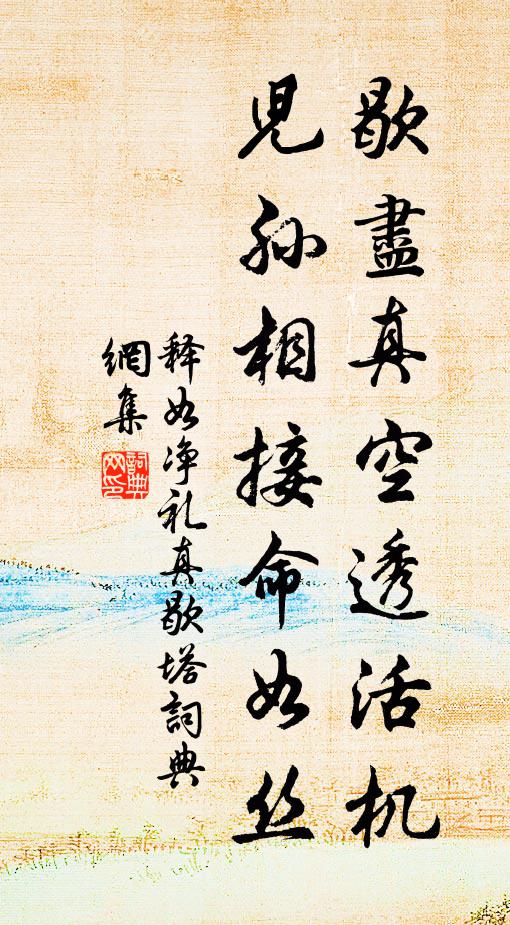 歇盡真空透活机
児孙相接命如丝
释如净礼真歇塔詞典
網集
詞典
网印